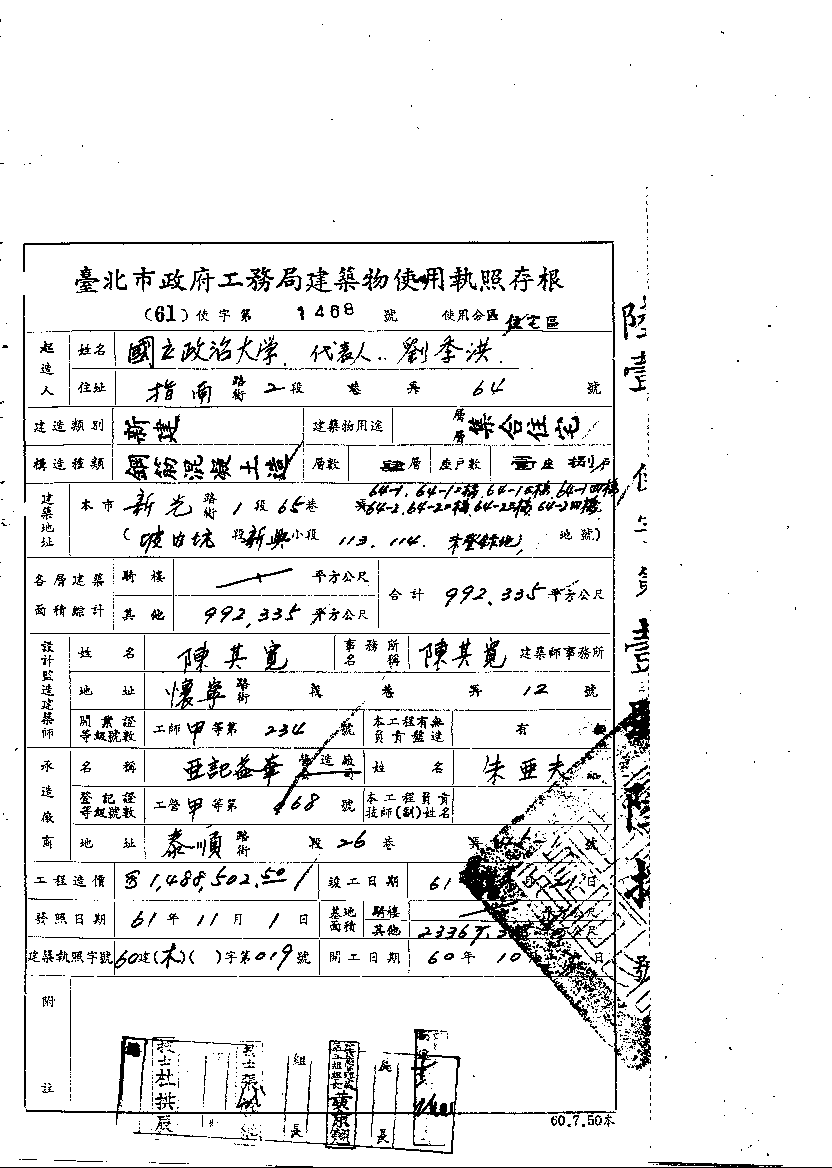 臺北市政府工務局建築物使用執照存根
(61)使字第 1468 號 使用分區 住宅區
起造人 姓名 國立政治大学. 代表人..劉季洪.
住址 指南 路街 2 段 巷 弄 64 號
建造類別 新建 建築物用途 層層 集合住宅
構造種類 鋼筋混凝土造 層數 肆層 座戶數 壹座 捌戶
建築地址 本市 新光 路街 1 段 65 巷 弄
64-1, 64-1二樓, 64-1三樓, 64-1四樓
64-2, 64-2二樓, 64-2三樓, 64-2四樓
(坡內坑 段 新興 小段 113, 114. 未登錄地 地號)
各層建築面積綜計 騎樓 平方公尺 合計 992.335 平方公尺
其他 992.335 平方公尺
設計監造建築師 姓名 陳其寬 事務所名稱 陳其寬 建築師事務所
地址 懷寧 路街 段 巷 弄 12 號
開業證等級號數 工師 甲 等第 234 號 本工程有無負責監造 有
承造廠商 名稱 亞記益華 營造廠 姓名 朱亞夫
登記證等級號數 工營 甲 等第 468 號 本工程負責技師(副)姓名
地址 泰順 路街 段 26 巷 弄 號
工程造價 1,488,502.50 竣工日期 61 日
發照日期 61 年 11 月 1 日 基地面積 騎樓
其他
建築執照字號 60建(木)( )字第019號 開工日期 60 年 10 日
附註
技士杜拱辰
技士張
組長
黃
長
60.7.50本
陸壹 使字第壹 陸拾 號